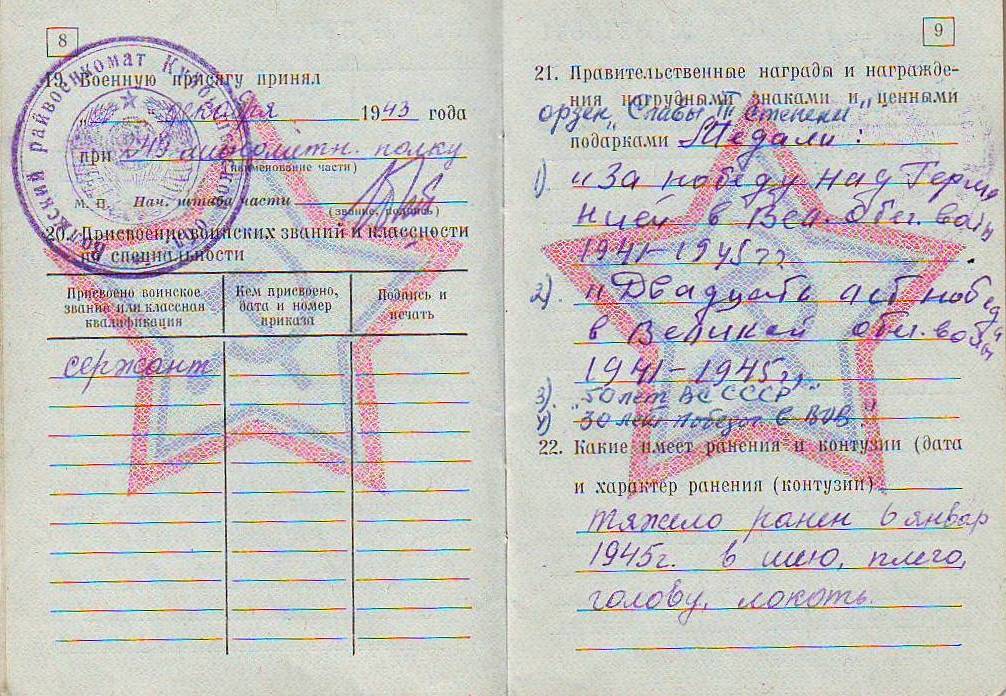 8
19. Военную присягу принял
декабря 1943 года
при полку
(наименование части)
М. П. Нач. штаба части
(звание, подпись)
20. Присвоение воинских званий и классности
по специальности
Присвоено воинское звание или классная квалификация
Кем присвоено, дата и номер приказа
Подпись и печать
сержант
9
21. Правительственные награды и награжде-
ния нагрудными знаками и ценными
орден "Славы III степени
подарками Медали:
1). "За победу над Герма
нией в Вел. Отеч. войн
1941-1945 гг.
2). "Двадцать лет побед
в Великой отеч. войны
1941-1945 гг."
3). "50 лет ВС СССР"
4) "30 лет Победы в ВОВ."
22. Какие имеет ранения и контузии (дата
и характер ранения (контузии)
тяжело ранен 6 январ
1945г. в шею, плечо,
голову, локоть.